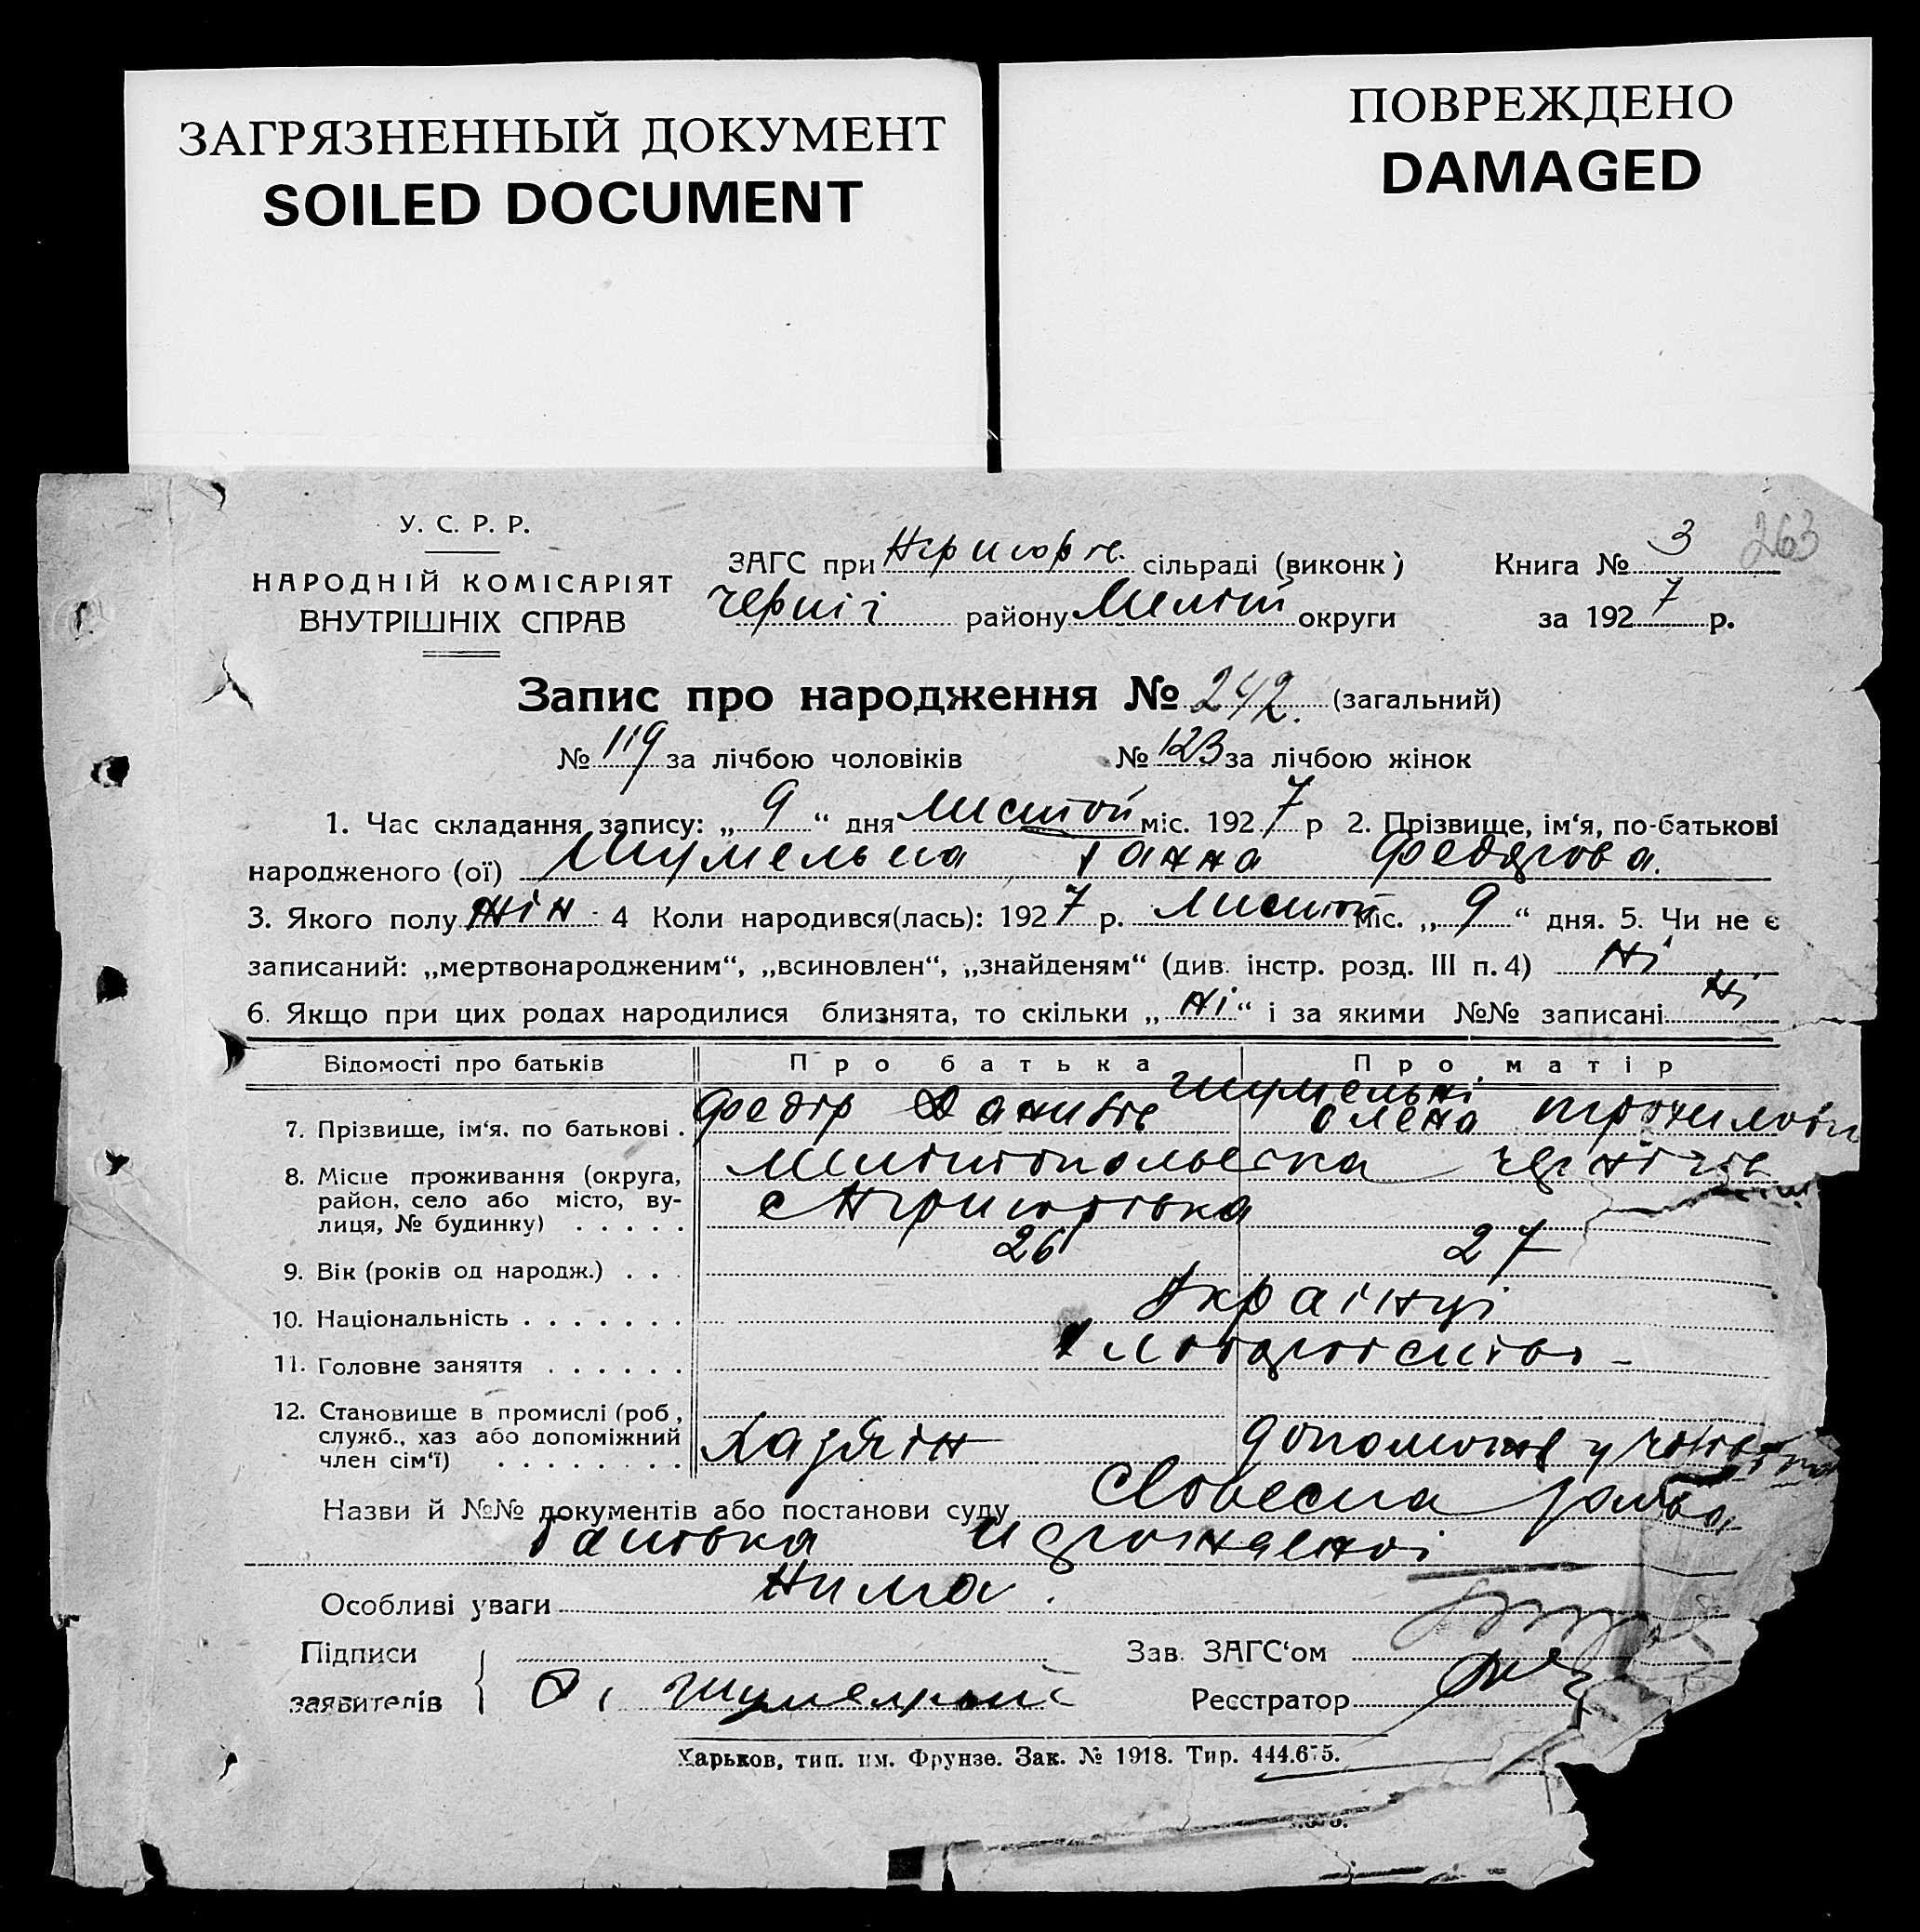 ЗАГРЯЗНЕННЫЙ ДОКУМЕНТ
SOILED DOCUMENT
ПОВРЕЖДЕНО
DAMAGED
У. С. Р. Р.
НАРОДНІЙ КОМІСАРІЯТ
ВНУТРІШНІХ СПРАВ
ЗАГС при сільраді (виконк)
району Меліт округи
Книга № 3
263
за 1927 р.
Запис про народження № 242. (загальний)
№ 119 за лічбою чоловіків № 123 за лічбою жінок
1. Час складання запису: „ 9 “ дня Листоп міс. 1927 р 2. Прізвище, ім‘я, по-батькові
народженого (ої) Шумельна Ганна Федорова.
3. Якого полу жін 4 Коли народився(лась): 1927 р. Листоп міс. „ 9 “ дня. 5. Чи не є
записаний: „мертвонародженим“, „всиновлен“, „знайденям“ (див. інстр. розд. III п. 4) Ні
6. Якщо при цих родах народилися близнята, то скільки „ Ні “ і за якими №№ записані Ні
Відомості про батьків Про батька Про матір
Шумельні
7. Прізвище, ім‘я, по батькові . Федір Данилів Олена
8. Місце проживання (округа, Мелітопольська
район, село або місто, ву- с
лиця, № будинку) . . . . .
9. Вік (років од народж.) . . . 26 27
10. Національність . . . . . . . Українці
11. Головне заняття . . . . . . Хліборобство
12. Становище в промислі (роб,
служб., хаз або допоміжний Хазяїн
член сім‘ї) . . . . . . . .
Назви й №№ документів або постанови суду Словесна заява
батька
Особливі уваги Нима.
Підписи
заявителів
Зав. ЗАГС‘ом
Реєстратор
Харьков, тип. им. Фрунзе. Зак. № 1918. Тир. 444.675.